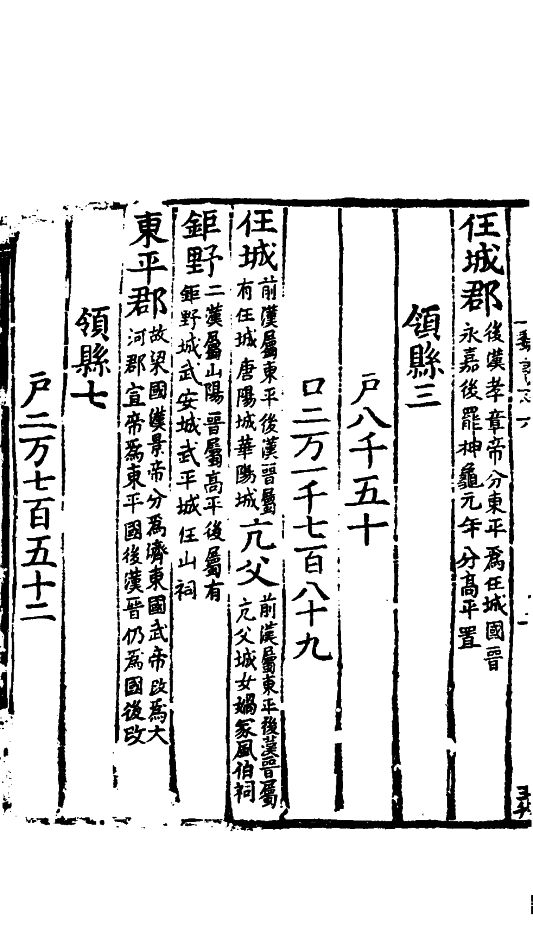 任城郡後漢孝章帝分東平為任城國晉永嘉後罷神龜元年分高平置
領縣三
戶八千五十
口二万一千七百八十九
任城前漢屬東平後漢晉屬有任城唐陽城華陽城亢父前漢屬東平後漢晉屬亢父城女媧冢風伯祠
鉅野二漢屬山陽晉屬高平後屬有鉅野城武安城武平城任山祠
東平郡故梁國漢景帝分為濟東國武帝改為大河郡宣帝為東平國後漢晉仍為國後改
領縣七
戶二万七百五十二